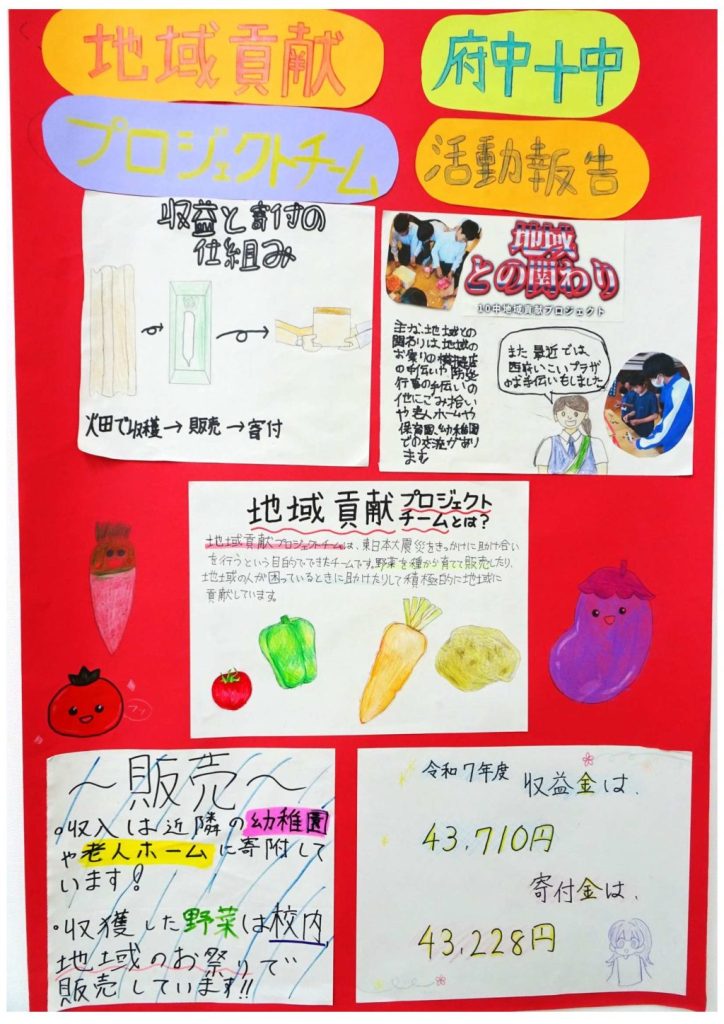 地域貢献
府中十中
プロジェクトチーム
活動報告
収益と寄付の
仕組み
畑で収穫→販売→寄付
地域
との関わり
10中地域貢献プロジェクト
主な地域との
関わりは、地域の
お祭りの模擬店
の手伝いや防災
行事の手伝いの
他にごみ拾い
や老人ホームや
保育園、幼稚園
での交流があり
ます
また最近では
西府いこいプラザ
のお手伝いもしました
地域貢献プロジェクト
チームとは?
地域貢献プロジェクトチームは、東日本大震災をきっかけに助け合い
を行うという目的でできたチームです。野菜を種から育てて販売したり、
地域の人が困っているときに助けたりして積極的に地域に
貢献しています。
〜販売〜
・収入は近隣の幼稚園
や老人ホームに寄附して
います!
・収獲した野菜は校内、
地域のお祭りで
販売しています!!
令和7年度
収益金は、
43,710円
寄付金は、
43,228円